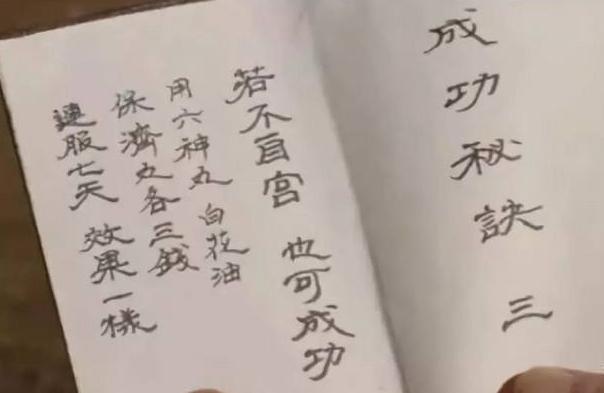 成功秘訣 三
若不自宮 也可成功
用六神丸 白花油
保濟丸各三錢
連服七天 效果一樣